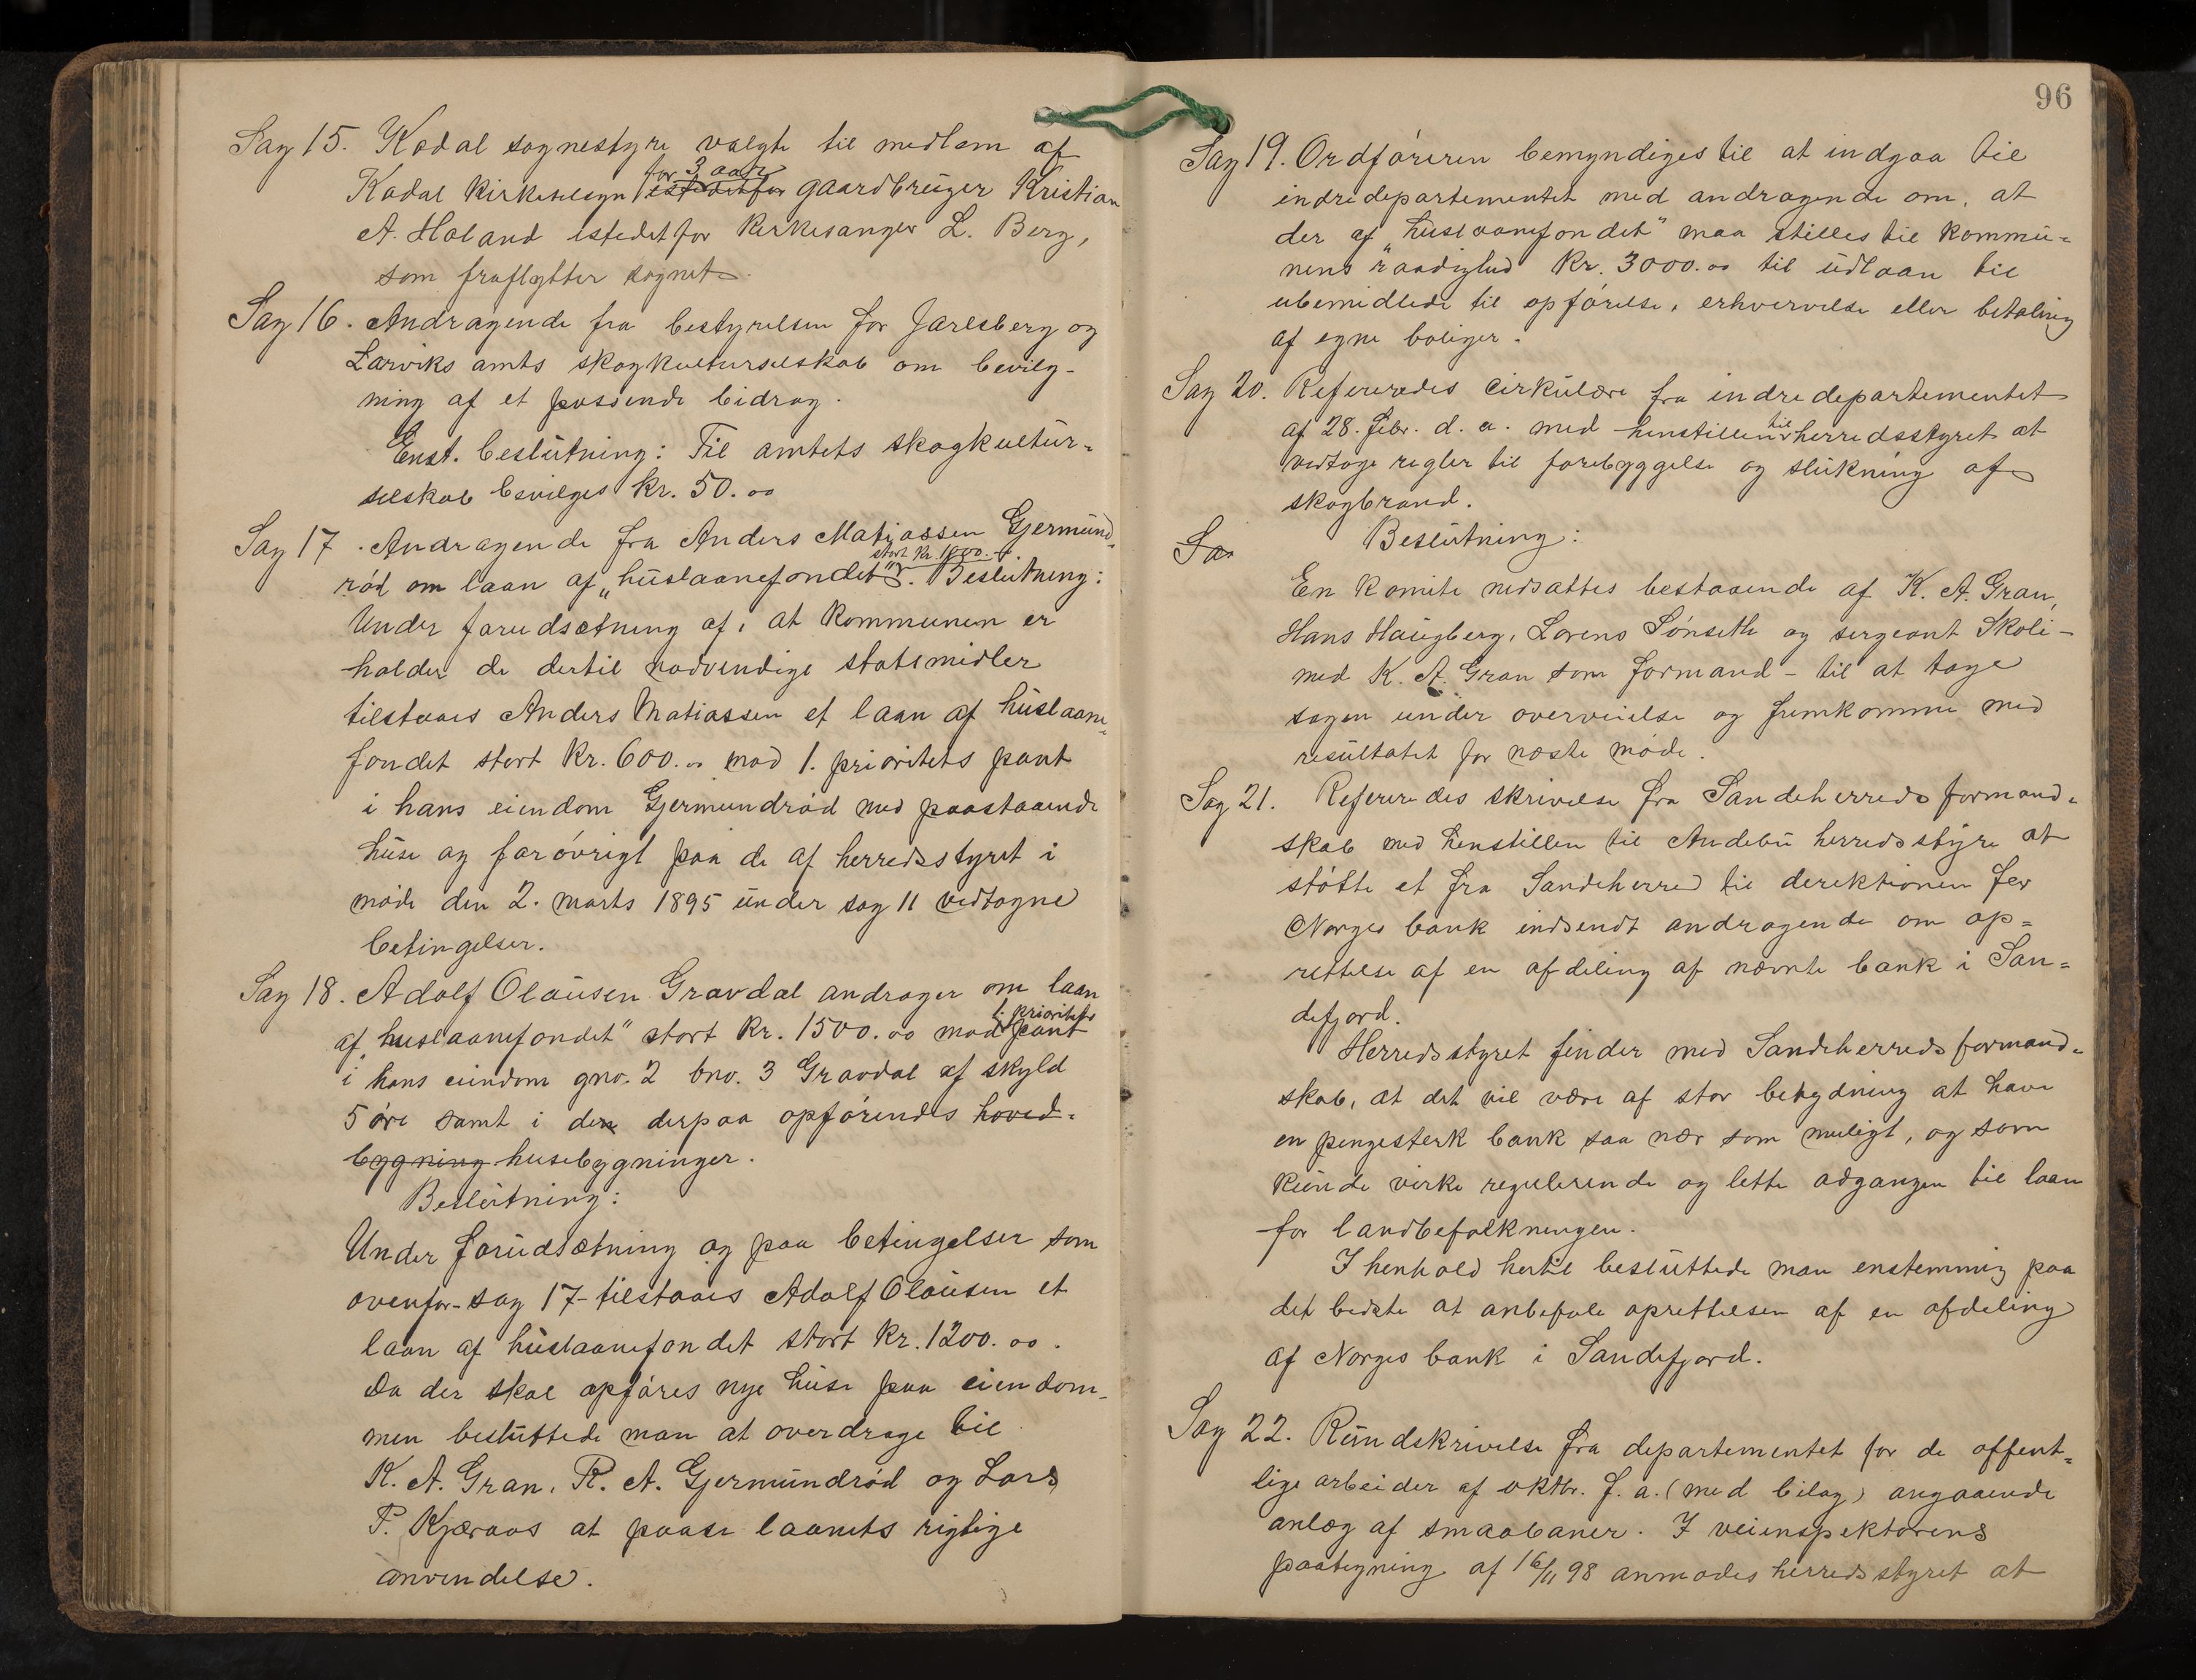 Sag 15. Kodal sognestyre valgte til medlem af
for 3 aar
Kodal kirketilsyn istedetfor gaardbruger Kristian
A. Holand istedetfor kirkesanger L. Berg,
som fraflytter sognet.
Sag 16. Andragende fra bestyrelsen for Jarlsberg og
Larviks amts skogkulturselskab om bevilg-
ning af et passende bidrag.
Enst. beslutning: Til amtets skogkultur-
selskab bevilges kr. 50.00
Sag 17. Andragende fra Anders Matiassen Gjermund-
stort kr. 1000.
rød om laan af „huslaanefondet". Beslutning:
Under forudsætning af, at kommunen er
holder de dertil nødvendige statsmidler
tilstaaes Anders Matiassen et laan af huslaane-
fondet stort kr. 600.00 mod 1. prioritets pant
i hans eiendom Gjermundrød med paastaaende
huse og forøvrigt paa de af herredsstyret i
møde den 2. marts 1895 under sag 11 vedtagne
betingelser.
Sag 18. Adolf Olausen Gravdal andrager om laan
1. prioritets
af „huslaanefondet" stort kr. 1500.00 mod pant
i hans eiendom gno. 2 bno. 3 Gravdal af skyld
5 øre samt i den derpaa opførendes hoved-
bygning husebygninger.
Beslutning:
Under forudsætning og paa betingelser som
ovenfor - sag 17 - tilstaaes Adolf Olausen et
laan af huslaanefondet stort kr. 1200.00.
Da der skal opføres nye huse paa eiendom-
men besluttede man at overdrage til
K. A. Gran, R. A. Gjermundrød og Lars
P. Kjæraas at paase laanets rigtige
anvendelse.
96
Sag 19. Ordføreren bemyndiges til at indgaa til
indredepartementet med andragende om, at
der af „huslaanefondet" maa stilles til kommu-
nens raadighed kr. 3000.00 til udlaan til
ubemidlede til opførelse, erhvervelse eller betaling
af egne boliger.
Sag 20. Refereredes cirkulære fra indredepartementet
til
af 28. febr. d. a. med henstillen herredsstyret at
vedtage regler til forebyggelse og slukning af
skogbrand.
Sa
Beslutning:
En komite nedsattes bestaaende af K. A. Gran,
Hans Haugberg, Lorens Sønseth og sergeant Skoli -
med K. A. Gran som formand - til at tage
sagen under overveielse og fremkomme med
resultatet for næste møde.
Sag 21. Refereredes skrivelse fra Sandeherreds formand-
skab med henstillen til Andebu herredsstyre at
støtte et fra Sandeherred til derektionen for
Norges bank indsendt andragende om op-
rettelse af en afdeling af nævnte bank i San-
defjord.
Herredsstyret finder med Sandeherreds formand-
skab, at det vil være af stor betydning at have
en pengesterk bank saa nær som muligt, og som
kunde virke regulerende og lette adgangen til laan
for landbefolkningen.
I henhold hertil besluttede man enstemmig paa
det bedste at anbefale oprettelsen af en afdeling
af Norges bank i Sandefjord.
Sag 22. Rundskrivelse fra departementet for de offent-
lige arbeider af oktbr. f. a. (med bilag) angaaende
anlæg af smaabaner. I veiinspektørens
paategning af 16/11 98 anmodes herredsstyret at